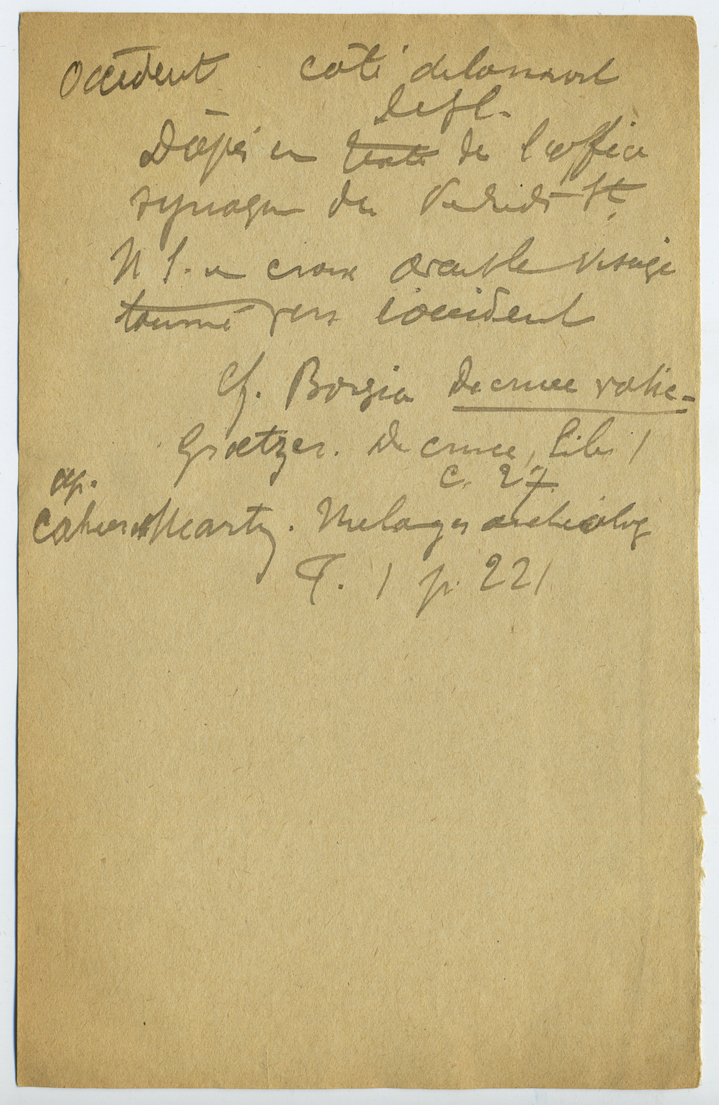 Occident côté de la mort
Défl.
D'après un texte de l'office
synagog du Vendredi St,
N S. en croix avait le visage
tourné vers l'occident
Cf. Borgia De cruce vatic-
Gretzer. De cruce, lib 1
c. 27
ap.
Cahier et Martin. Mélanges archéolog
T. 1 p. 221